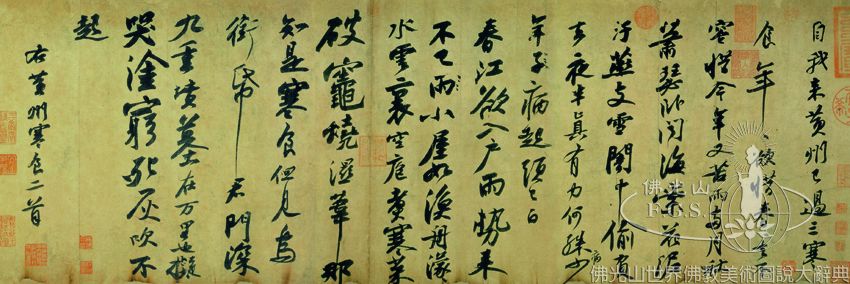 自我來黃州已過三寒
食年〻欲惜春〻去不
容惜今年又苦雨兩月秋
蕭瑟臥聞海棠花泥
汙燕支雪闇中偷負
去夜半真有力何殊少
病
年子病起頭已白
春江欲入戶雨勢來
不已雨小屋如漁舟濛〻
水雲裏空庖煮寒菜
破竈燒濕葦那
知是寒食但見烏
銜帋君門深
九重墳墓在万里也擬
哭塗窮死灰吹不
起
右黃州寒食二首
佛光山
F.G.S.
佛光山世界佛教美術圖說大辭典